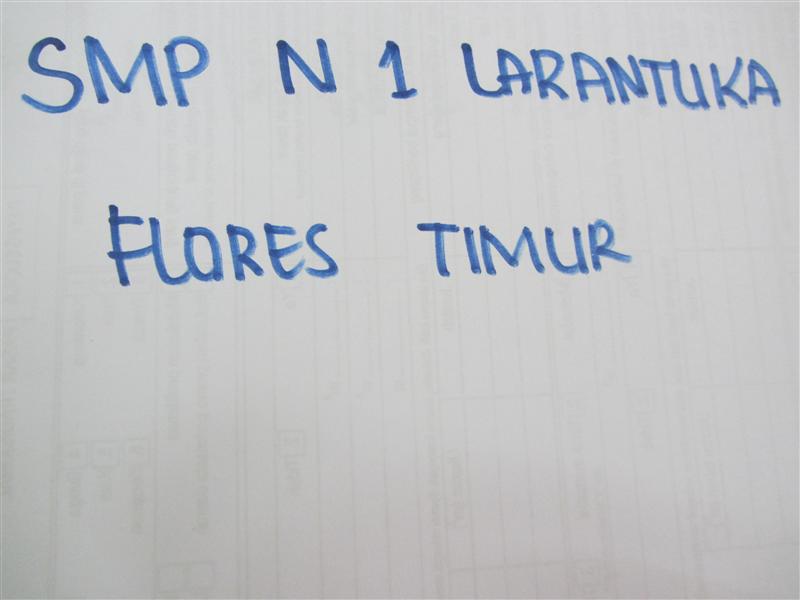 SMP N 1 LARANTUKA
FLORES TIMUR